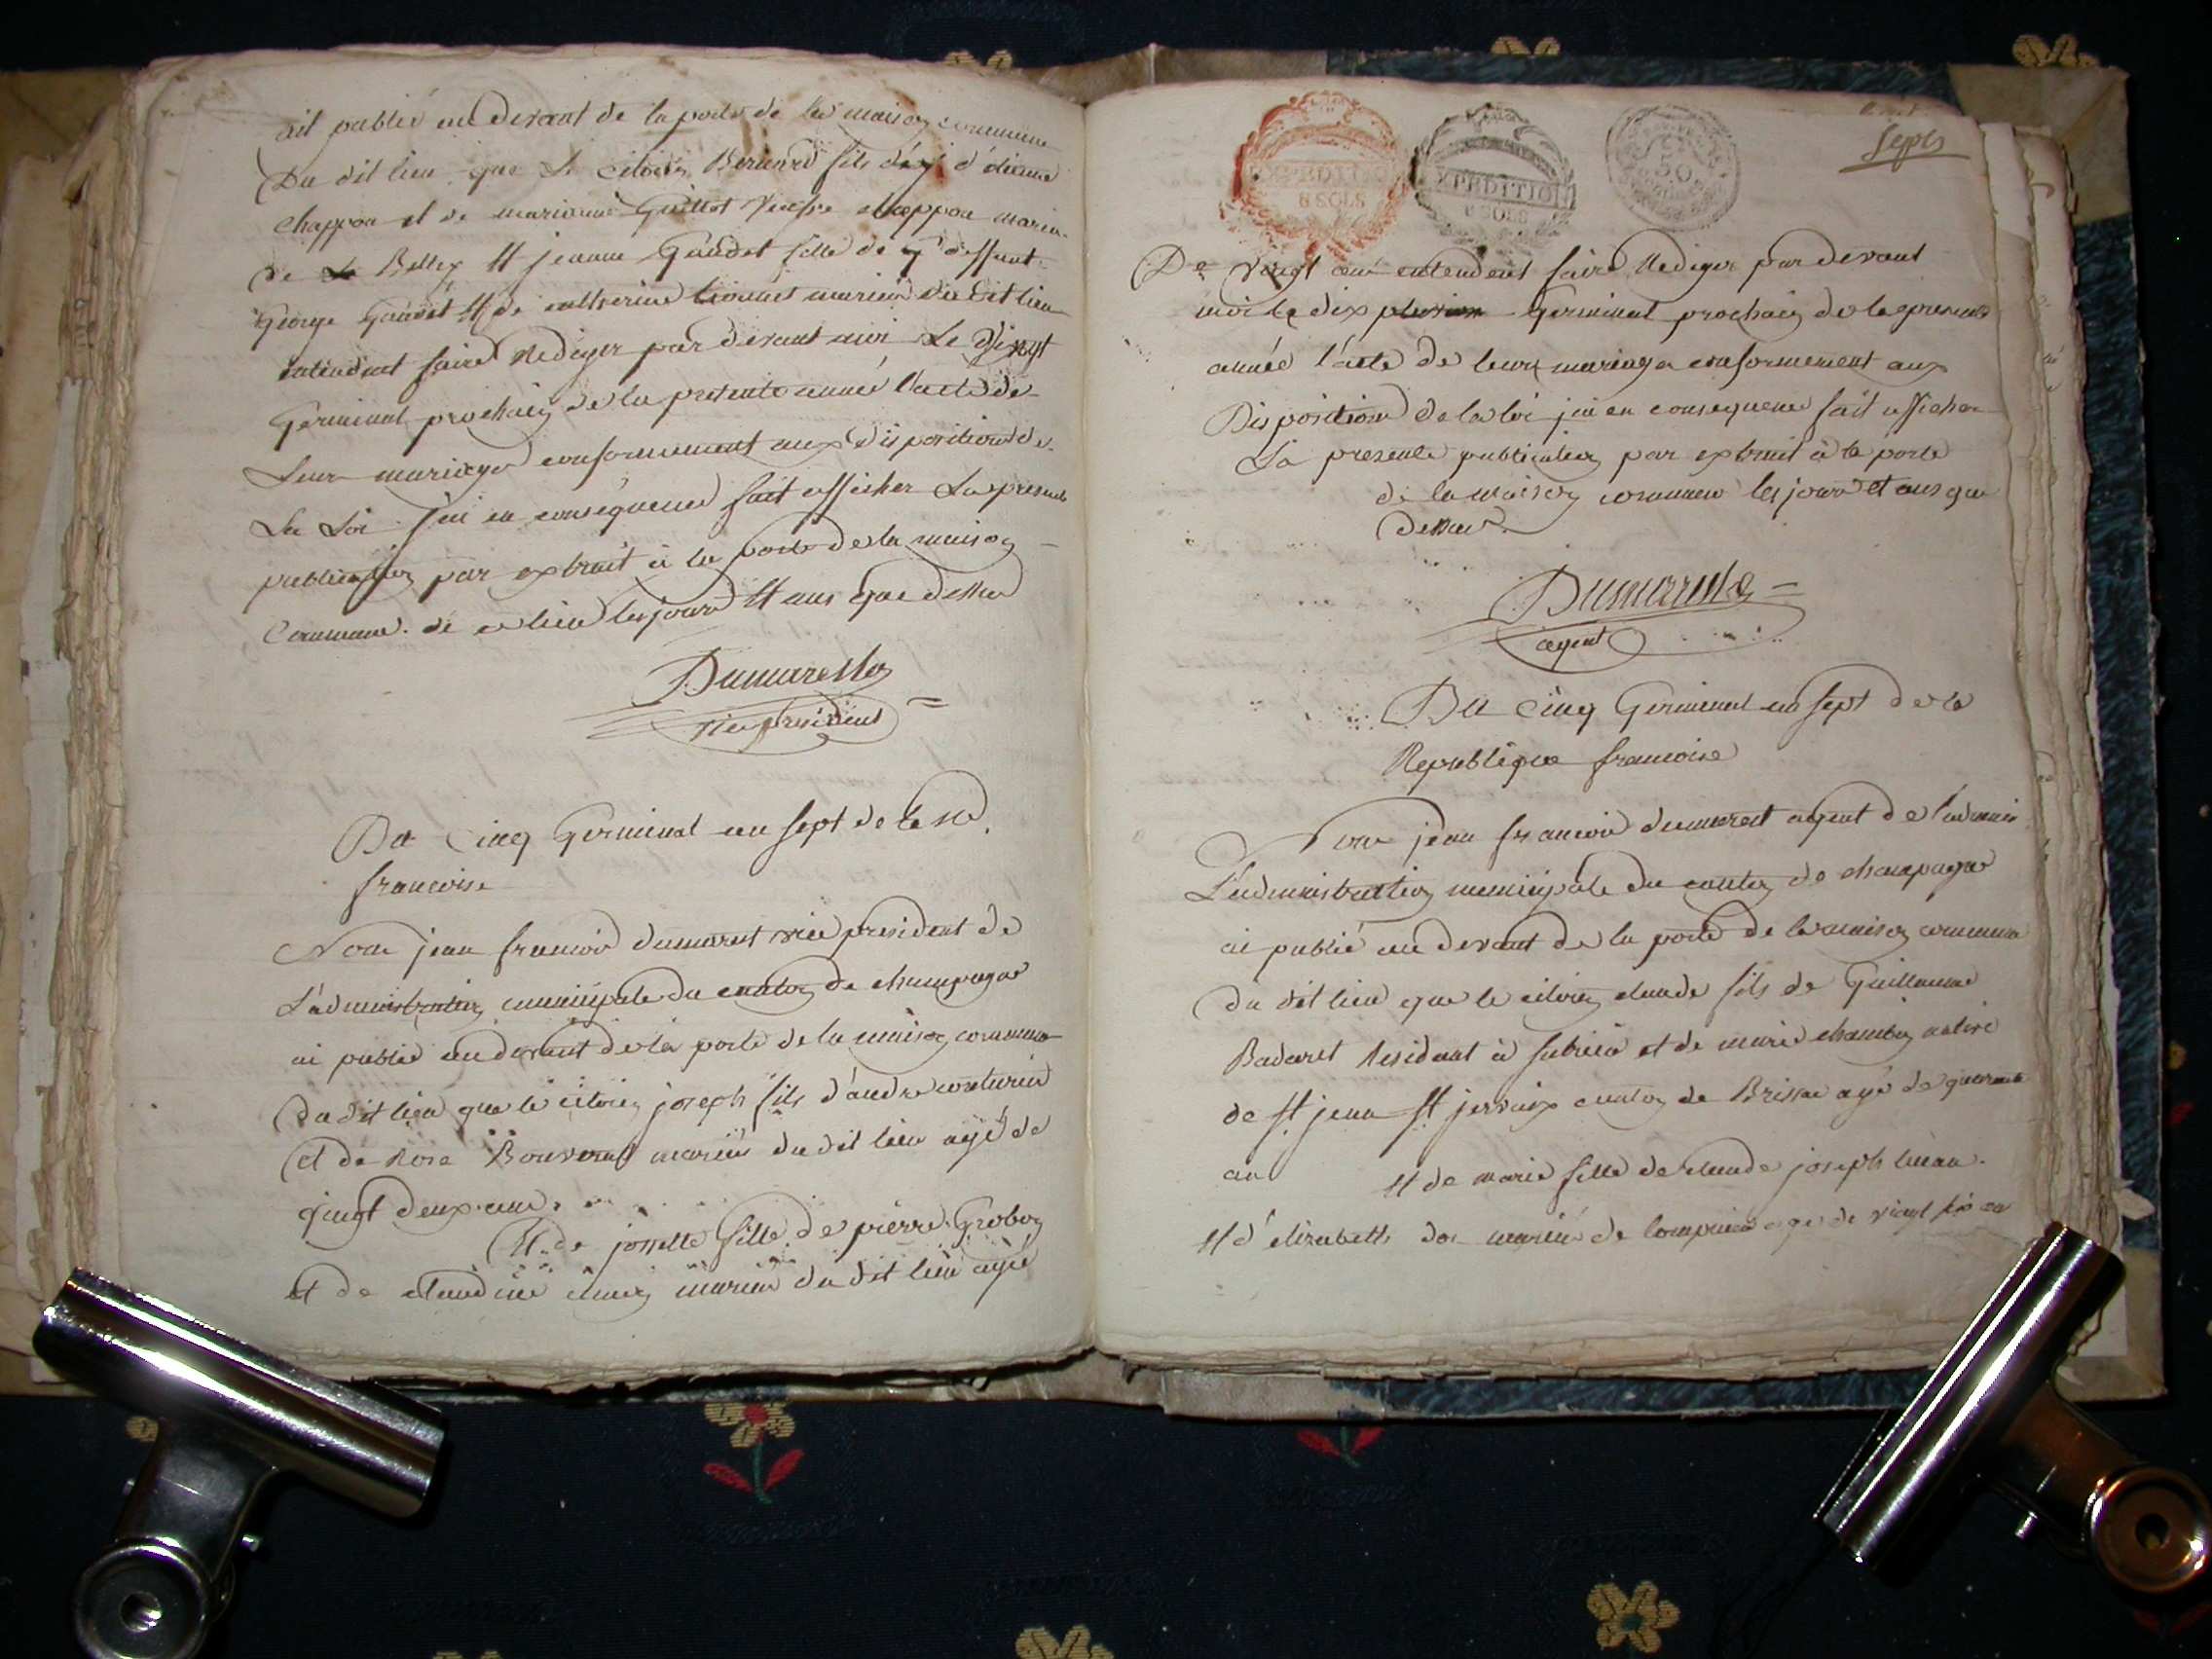 ait publié au devant de la porte de la maison commune
Du dit lieu que le citoien Bernard fils d'étienne
chappon et de marianne Guillot veuve chappon
de Belley et jeanne Gaudet fille de deffunt
George Gaudet et de catherine mariés du dit lieu
entendent faire Rediger par devant moi Le Vingt
Germinal prochain de la presente année l'acte de
Leur mariage conformement aux dispositions de
La Loi j'ai en conséquence fait afficher La presente
publication par extrait à la porte de la maison
Commune de ce lieu les jours et ans que dessus
Dumarest
vice president
Du Cinq Germinal an sept de la
francoise
Nous jean francois dumarest vice president de
L'administration municipale du canton de champagne
ai publié au devant de la porte de la maison commune
du dit lieu que le citoien joseph fils d'andre couturier
et de Rose mariés du dit lieu agé de
vingt deux ans
Et de josette fille de pierre Grobon
et de claudine mariés du dit lieu agée
Sept
EXPEDITION
6 SOLS
EXPEDITION
6 SOLS
50
De vingt ans entendent faire Rediger par devant
moi le dix Germinal prochain de la presente
année l'acte de leurs mariage conformement aux
Dispositions de la loi j'ai en consequence fait afficher
La presente publication par extrait à la porte
de la maison commune les jours et ans que
dessus
Dumarest
agent
Du Cinq Germinal an sept de la
Republique francoise
Nous jean francois dumarest agent de l'admin
L'administration municipale du canton de champagne
ai publié au devant de la porte de la maison commune
du dit lieu que le citoien claude fils de Guillaume
Badaret Residant à et de marie natire
de St jean canton de agé de quarante
an et de marie fille de claude joseph
et d'elizabeth mariés de agé de vingt an